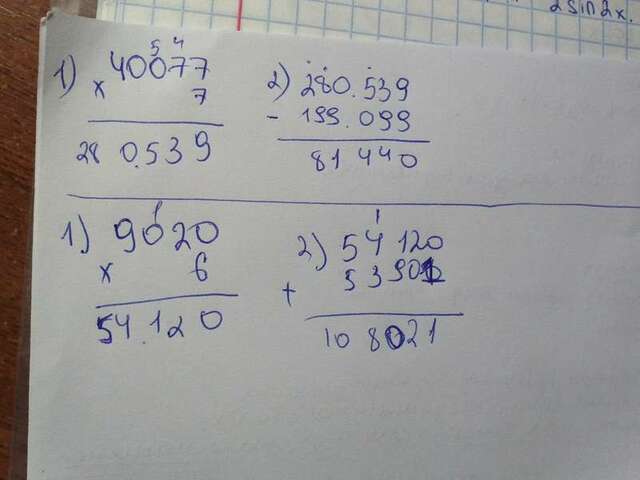 2sin2x.
5 4
1) 40077
x 7
280.539
2) 280.539
- 199.099
81440
1
1) 9020
x 6
54.120
1
2) 54120
+ 53901
108021